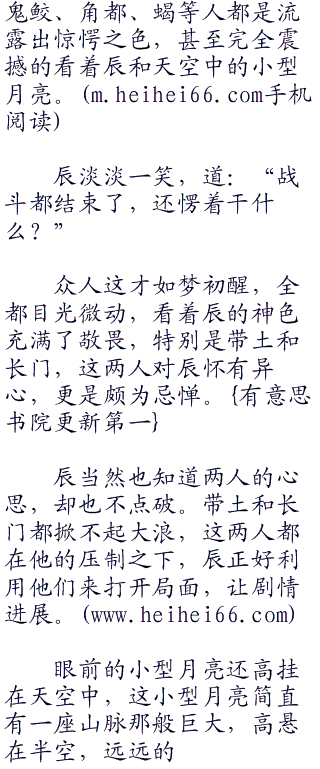 鬼鲛、角都、蝎等人都是流
露出惊愕之色，甚至完全震
撼的看着辰和天空中的小型
月亮。(m.heihei66.com手机
阅读)
辰淡淡一笑，道：“战
斗都结束了，还愣着干什
么？”
众人这才如梦初醒，全
都目光微动，看着辰的神色
充满了敬畏，特别是带土和
长门，这两人对辰怀有异
心，更是颇为忌惮。{有意思
书院更新第一}
辰当然也知道两人的心
思，却也不点破。带土和长
门都掀不起大浪，这两人都
在他的压制之下，辰正好利
用他们来打开局面，让剧情
进展。(www.heihei66.com)
眼前的小型月亮还高挂
在天空中，这小型月亮简直
有一座山脉那般巨大，高悬
在半空，远远的